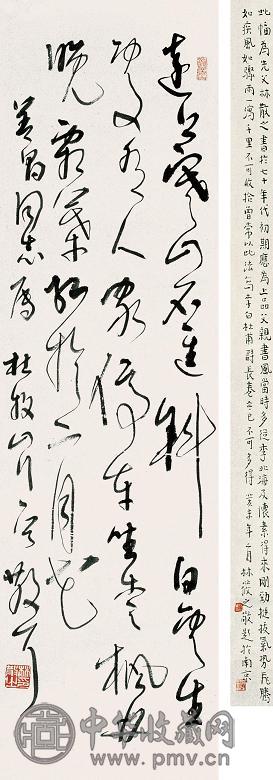 此幅為先父林散之書於七十年代初期應為上品父親書風當時多從李北海及懷素得來剛勁挺拔氣勢飛騰
如疾風如驟雨一瀉千里不可收拾曾常以此法寫李白杜甫詩長卷今已不可多得 癸未年二月林筱之敬題於南京
遠上寒山石逕斜白雲生
處有人家停車坐愛楓林
晚霜葉紅於二月花
善昌同志屬 杜牧山行 散耳
中华收藏网